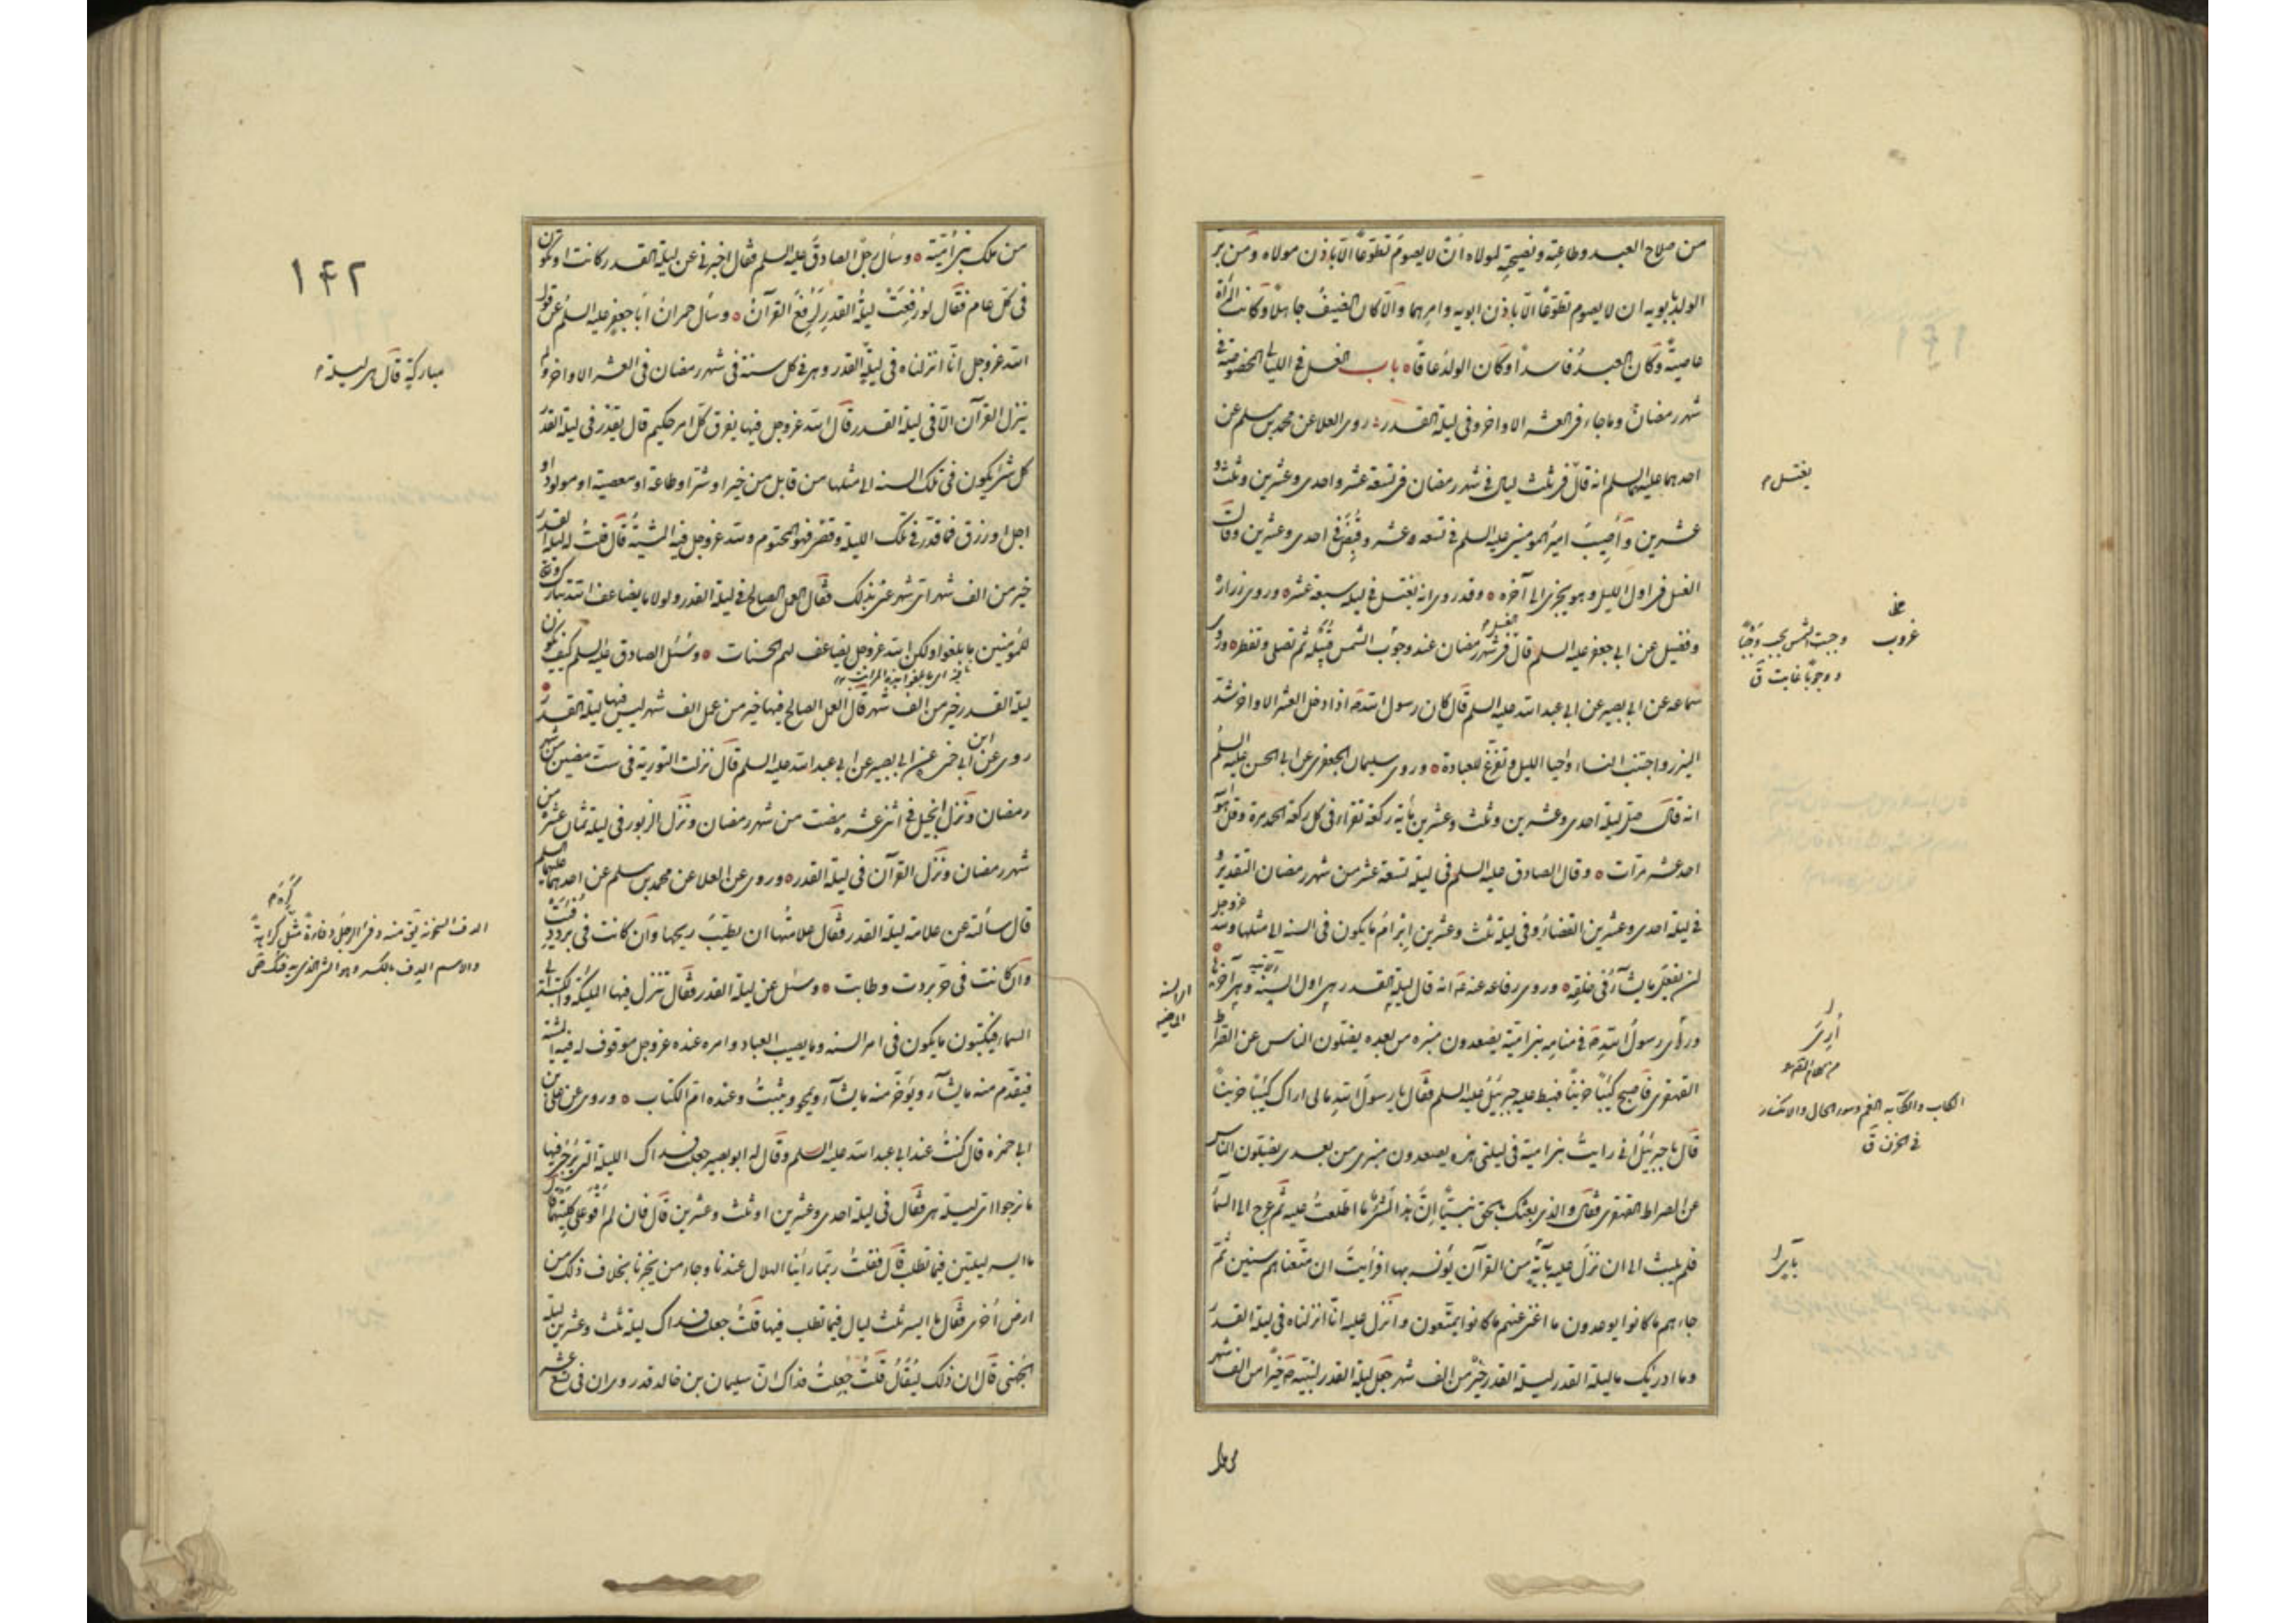 من صلاح العبد وطاعته ونصيحته لمولاه ان لا يصوم تطوعًا الا باذن مولاه ومن بر
الولد بابويه ان لا يصوم تطوعًا الا باذن ابويه وامرهما والا كان الضيف جاهلًا وكانت المرأة
عاصية وكان العبد فاسدًا وكان الولد عاقًا باب الغسل في الليالي المخصوصة في
شهر رمضان وما جاء في العشر الاواخر وفي ليلة القدر روى العلا عن محمد بن مسلم عن
احدهما عليهما السلم انه قال في ثلث ليال في شهر رمضان في تسعة عشر واحدى وعشرين وثلث و
عشرين وأصيب امير المومنين عليه السلم في تسعه عشر وقبض في احدى وعشرين وقال
الغسل في اول الليل وهو يجزى الى آخره وقد روى انه يغتسل في ليلة سبعة عشر وروى زرارة
وفضيل عن ابي جعفر عليه السلم قال الغسل في شهر رمضان عند وجوب الشمس قبيله ثم تصلى وتفطر وروى
سماعه عن ابي بصير عن ابي عبد الله عليه السلم قال كان رسول الله ص اذا دخل العشر الاواخر شد
الميزر واجتنب النساء واحيا الليل وتفرغ للعبادة وروى سليمان الجعفرى عن ابي الحسن عليه السلم
انه قال صل ليلة احدى وعشرين وثلث وعشرين مأية ركعة تقراء في كل ركعة الحمد مرة وقل هو الله
احد عشر مرات وقال الصادق عليه السلم في ليلة تسعة عشر من شهر رمضان التقدير و
في ليلة احدى وعشرين القضاء وفي ليلة ثلث وعشرين ابرام ما يكون في السنه الى مثلها ولله عز وجل
ان يفعل ما يشآء في خلقه وروى رفاعه عنه ع انه قال ليلة القدر هي اول السنه وهي آخرها
ورأى رسول الله ص في منامه بنى امية يصعدون منبره من بعده يضلون الناس عن الصراط
القهقرى فاصبح كئيبًا حزينًا فهبط عليه جبرئيل عليه السلم فقال يا رسول الله مالى اراك كئيبًا حزينًا
قال يا جبرئيل انى رايت بنى امية في ليلتى هذه يصعدون منبرى من بعدى يضلون الناس
عن الصراط القهقرى فقال والذى بعثك بالحق نبيًا ان هذا لشئ ما اطلعت عليه ثم عرج الى السمآء
فلم يلبث الى ان نزل عليه بآية من القرآن يؤنسه بها افرأيت ان متعناهم سنين ثم
جاءهم ما كانوا يوعدون ما اغنى عنهم ما كانوا يمتعون وانزل عليه انا انزلناه في ليلة القدر
وما ادريك ما ليلة القدر ليلة القدر خير من الف شهر جعل ليلة القدر لنبيه ص خيرًا من الف شهر
يغتسل م
غروب
وجبت الشمس تجب وجبًا
و وجوبًا غابت ق
أرى
الكاب والكآبه الغم وسوء الحال والانكسار
فى الحزن ق
من ملك بنى امية وسأل رجل الصادق عليه السلم فقال اخبرنى عن ليلة القدر كانت او تكون
فى كل عام فقال لو رفعت ليلة القدر لرفع القرآن وسأل حمران ابا جعفر عليه السلم عن قول
الله عز وجل انا انزلناه فى ليلة القدر وهى فى كل سنة فى شهر رمضان فى العشر الاواخر ولم
ينزل القرآن الا فى ليلة القدر قال الله عز وجل فيها يفرق كل امر حكيم قال يقدر فى ليلة القدر
كل شئ يكون فى تلك السنه الى مثلها من قابل من خير او شر او طاعة او معصية او مولود او
اجل او رزق فما قدر فى تلك الليلة وقضى فهو المحتوم ولله عز وجل فيه المشية قال قلت له ليلة القدر
خير من الف شهر اى شهر عنى بذلك فقال العمل الصالح فى ليلة القدر ولولا ما يضاعف الله تبارك وتعالى
للمؤمنين ما بلغوا ولكن الله عز وجل يضاعف لهم الحسنات وسئل الصادق عليه السلم كيف تكون
ليلة القدر خير من الف شهر قال العمل الصالح فيها خير من عمل الف شهر ليس فيها ليلة القدر
روى عن ابن ابى حمزة عن ابى بصير عن ابى عبد الله عليه السلم قال نزلت التورية فى ست مضين من شهر
رمضان ونزل انجيل فى اثنى عشر مضت من شهر رمضان ونزل الزبور فى ليلة ثمان عشرة من
شهر رمضان ونزل القرآن فى ليلة القدر وروى عن العلا عن محمد بن مسلم عن احدهما عليهما السلم
قال سألته عن علامة ليلة القدر فقال علامتها ان يطيب ريحها وان كانت فى برد دفئت
وان كانت فى حر بردت وطابت وسئل عن ليلة القدر فقال تنزل فيها الملئكة والكتبة الى
السماء فيكتبون ما يكون فى امر السنه وما يصيب العباد وامره عنده عز وجل موقوف له فيه المشية
فيقدم منه ما يشآء ويؤخر منه ما يشآء ويمحو ويثبت وعنده ام الكتاب وروى عن على بن
ابى حمزه قال كنت عند ابى عبد الله عليه السلم وقال له ابو بصير جعلت فداك الليلة التى يرجى فيها
ما نرجوا اى ليلة هى فقال فى ليلة احدى وعشرين او ثلث وعشرين قال فان لم اقو على كلتيهما قال
ما ايسر ليلتين فيما تطلب قال فقلت ربما راينا الهلال عندنا وجاء من يخبرنا بخلاف ذلك من
ارض اخرى فقال ما ايسر ثلث ليال فيما تطلب فيها قلت جعلت فداك ليلة ثلث وعشرين ليلة
الجهنى قال ان ذلك ليقال قلت جعلت فداك ان سليمان بن خالد قد روى ان فى تسع عشر
١٤٢
مباركة قال هى ليلة م